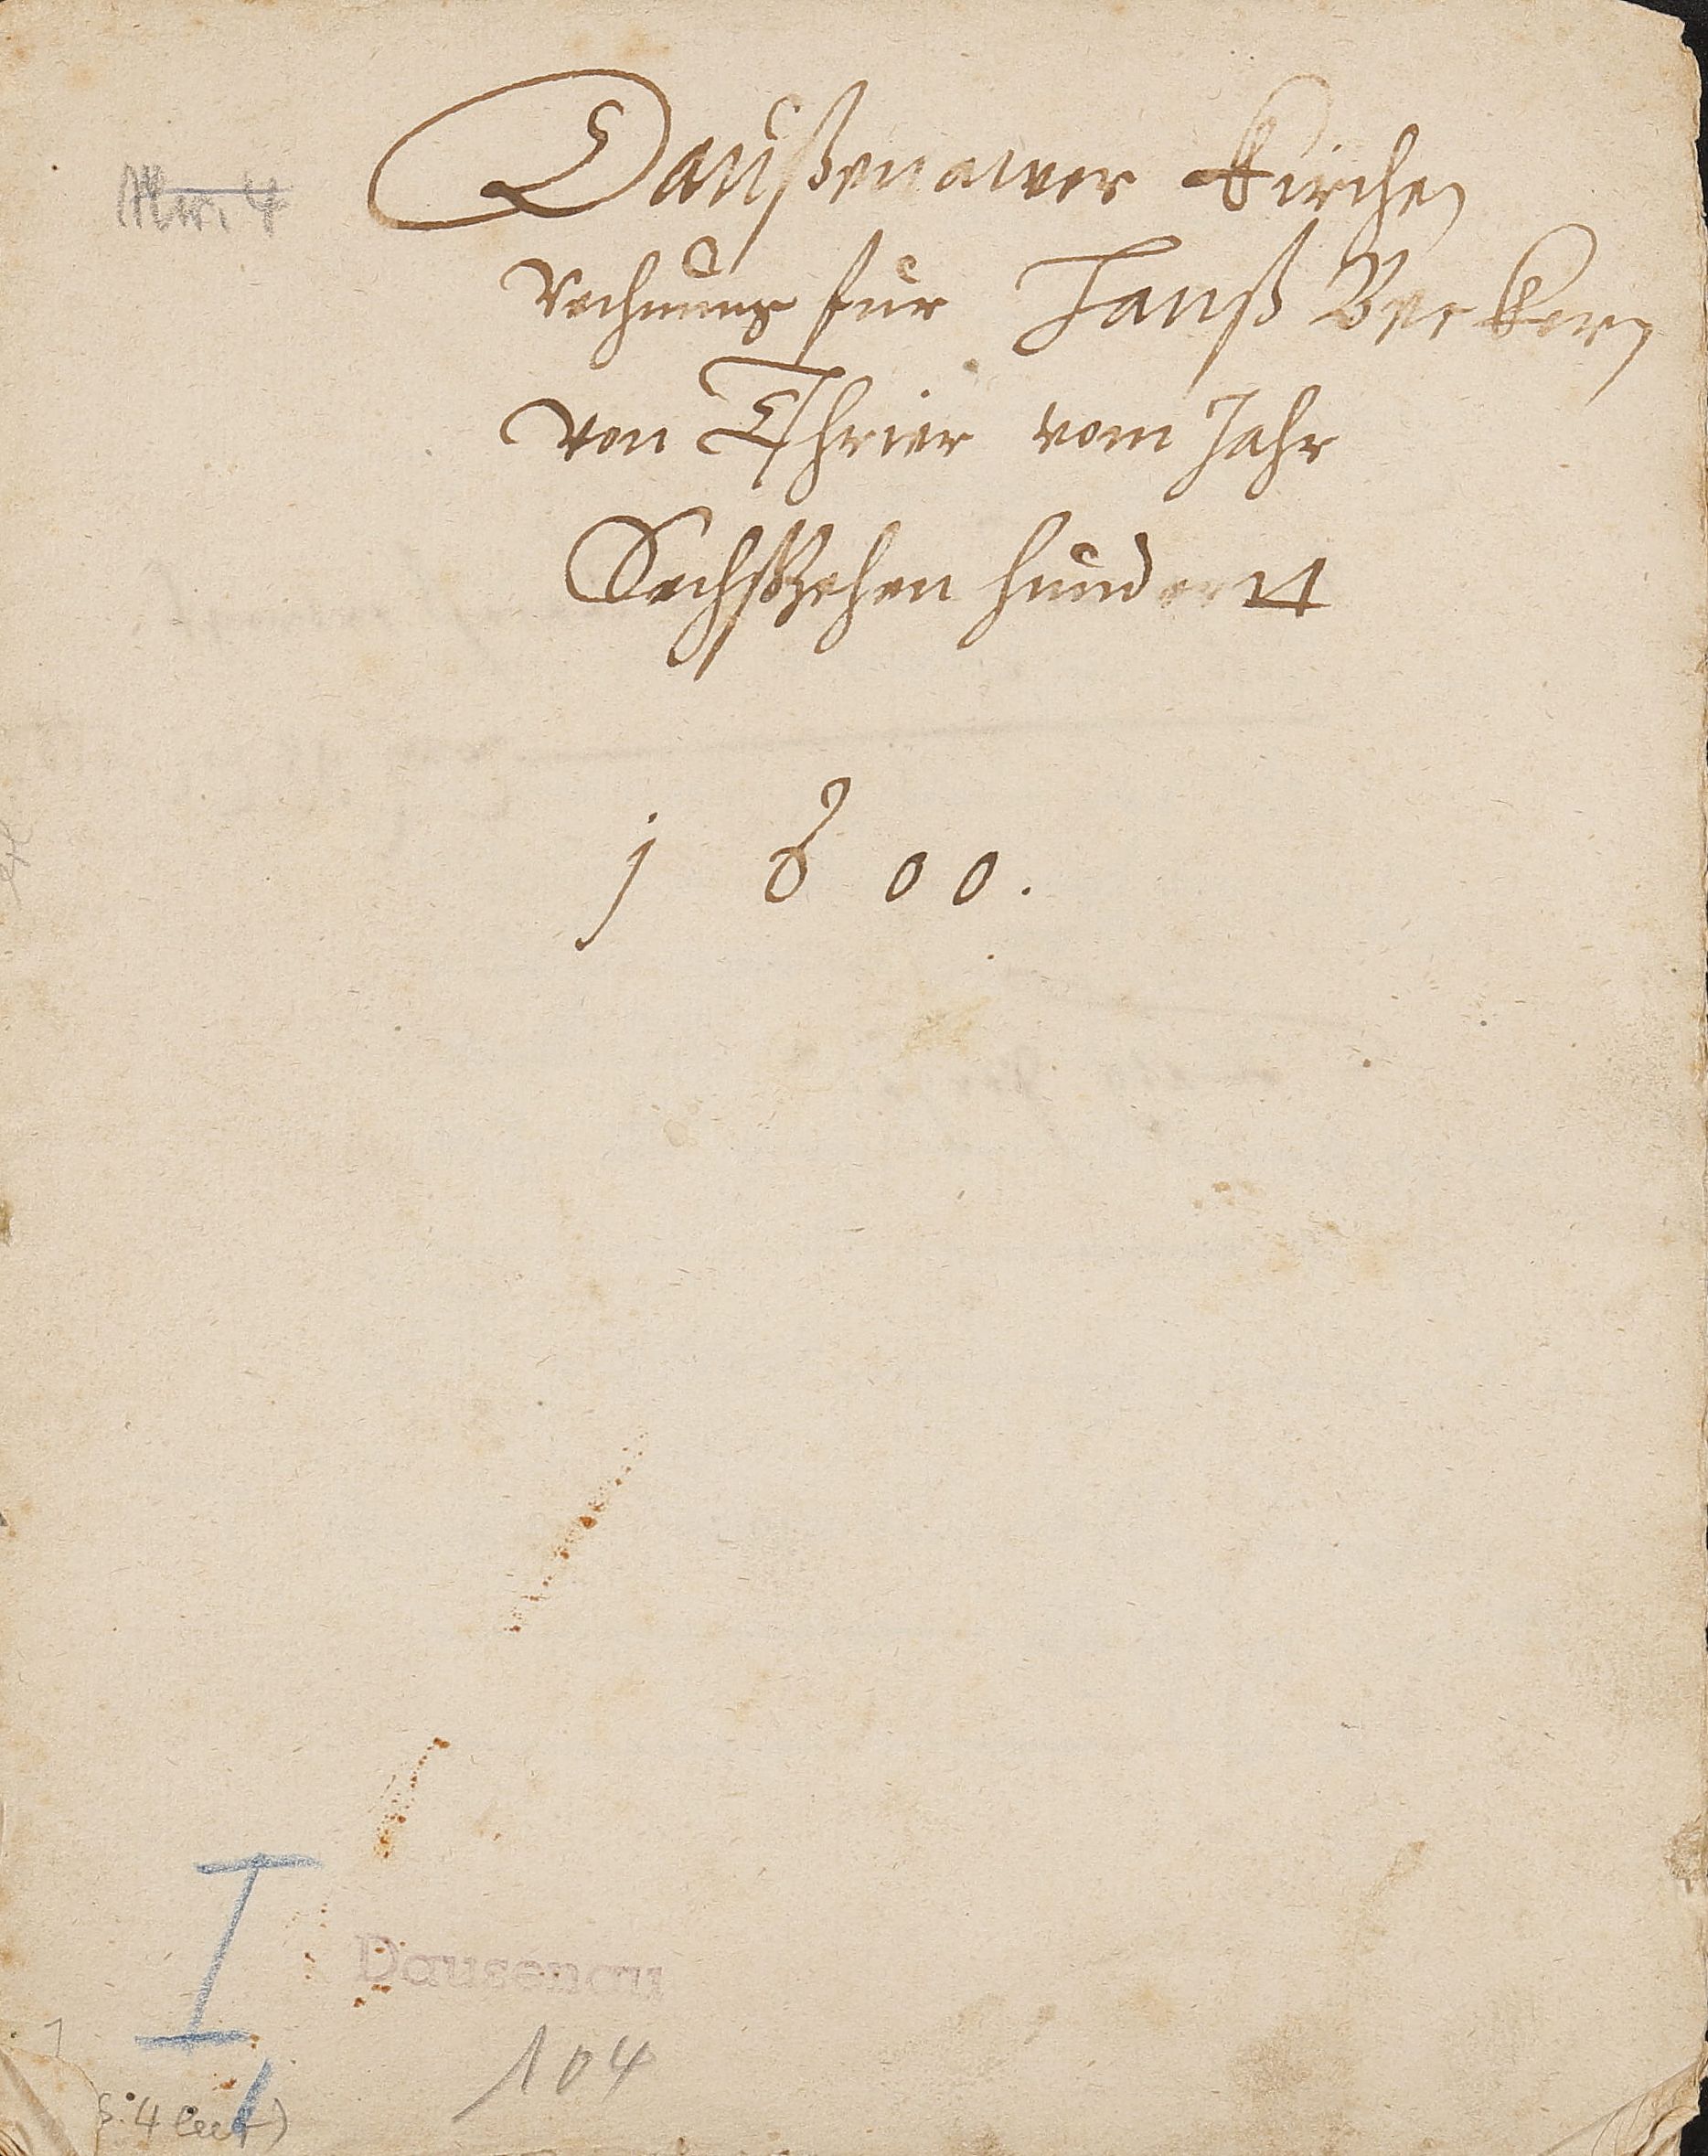 Daußenawer Kirchen
Rechnung für Hanß Beckern
von Thrier vom Jahr
Sechßzehen hundertt
1600.
I
Dausenau
104
S. 4 leer)